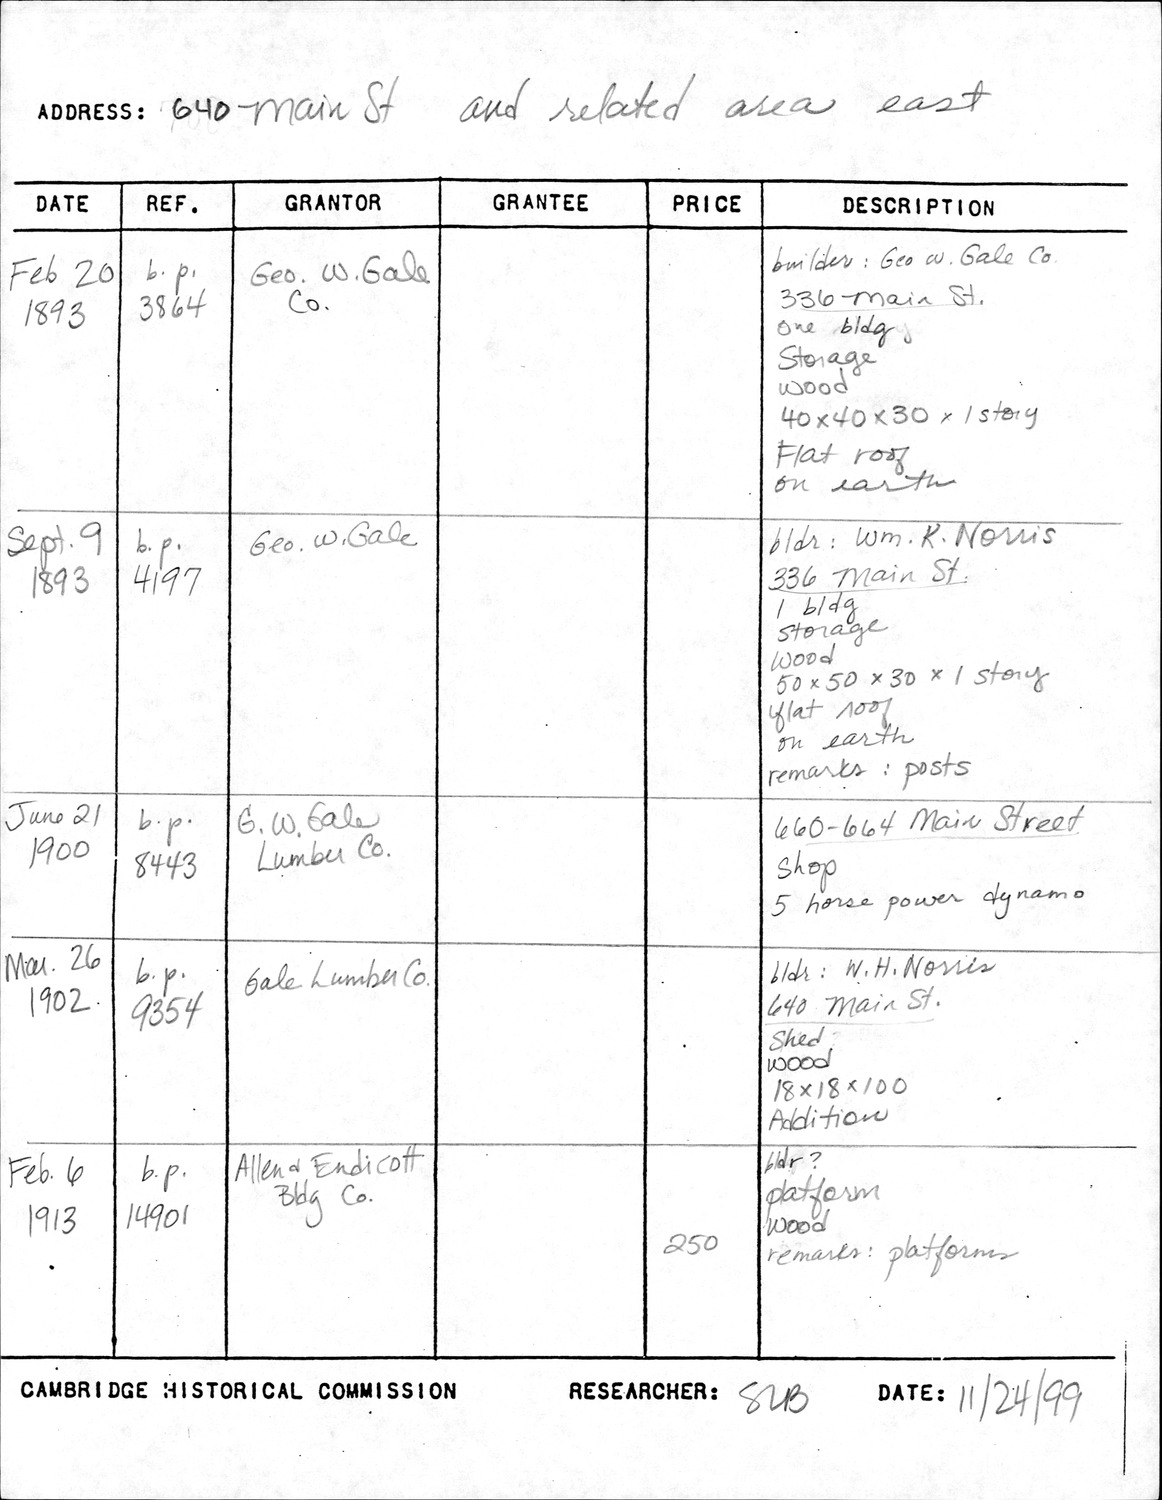 ADDRESS: 640 Main St and related area east
DATE REF. GRANTOR GRANTEE PRICE DESCRIPTION
Feb 20 1893
b.p. 3864
Geo. W. Gale Co.
builder: Geo W. Gale Co.
336 Main St.
one bldg
Storage
wood
40x40x30 x 1 story
Flat roof
on earth
Sept. 9 1893
b.p. 4197
Geo. W. Gale
bldr: Wm. K. Norris
336 Main St.
1 bldg
storage
wood
50x50x30 x 1 story
flat roof
on earth
remarks: posts
June 21 1900
b.p. 8443
G. W. Gale Lumber Co.
660-664 Main Street
Shop
5 horse power dynamo
Mar. 26 1902.
b.p. 9354
Gale Lumber Co.
bldr: W.H. Norris
640 Main St.
Shed
wood
18x18x100
Addition
Feb. 6 1913
b.p. 14901
Allen & Endicott Bldg Co.
250
bldr?
platform
wood
remarks: platforms
CAMBRIDGE HISTORICAL COMMISSION RESEARCHER: DATE: 11/24/99